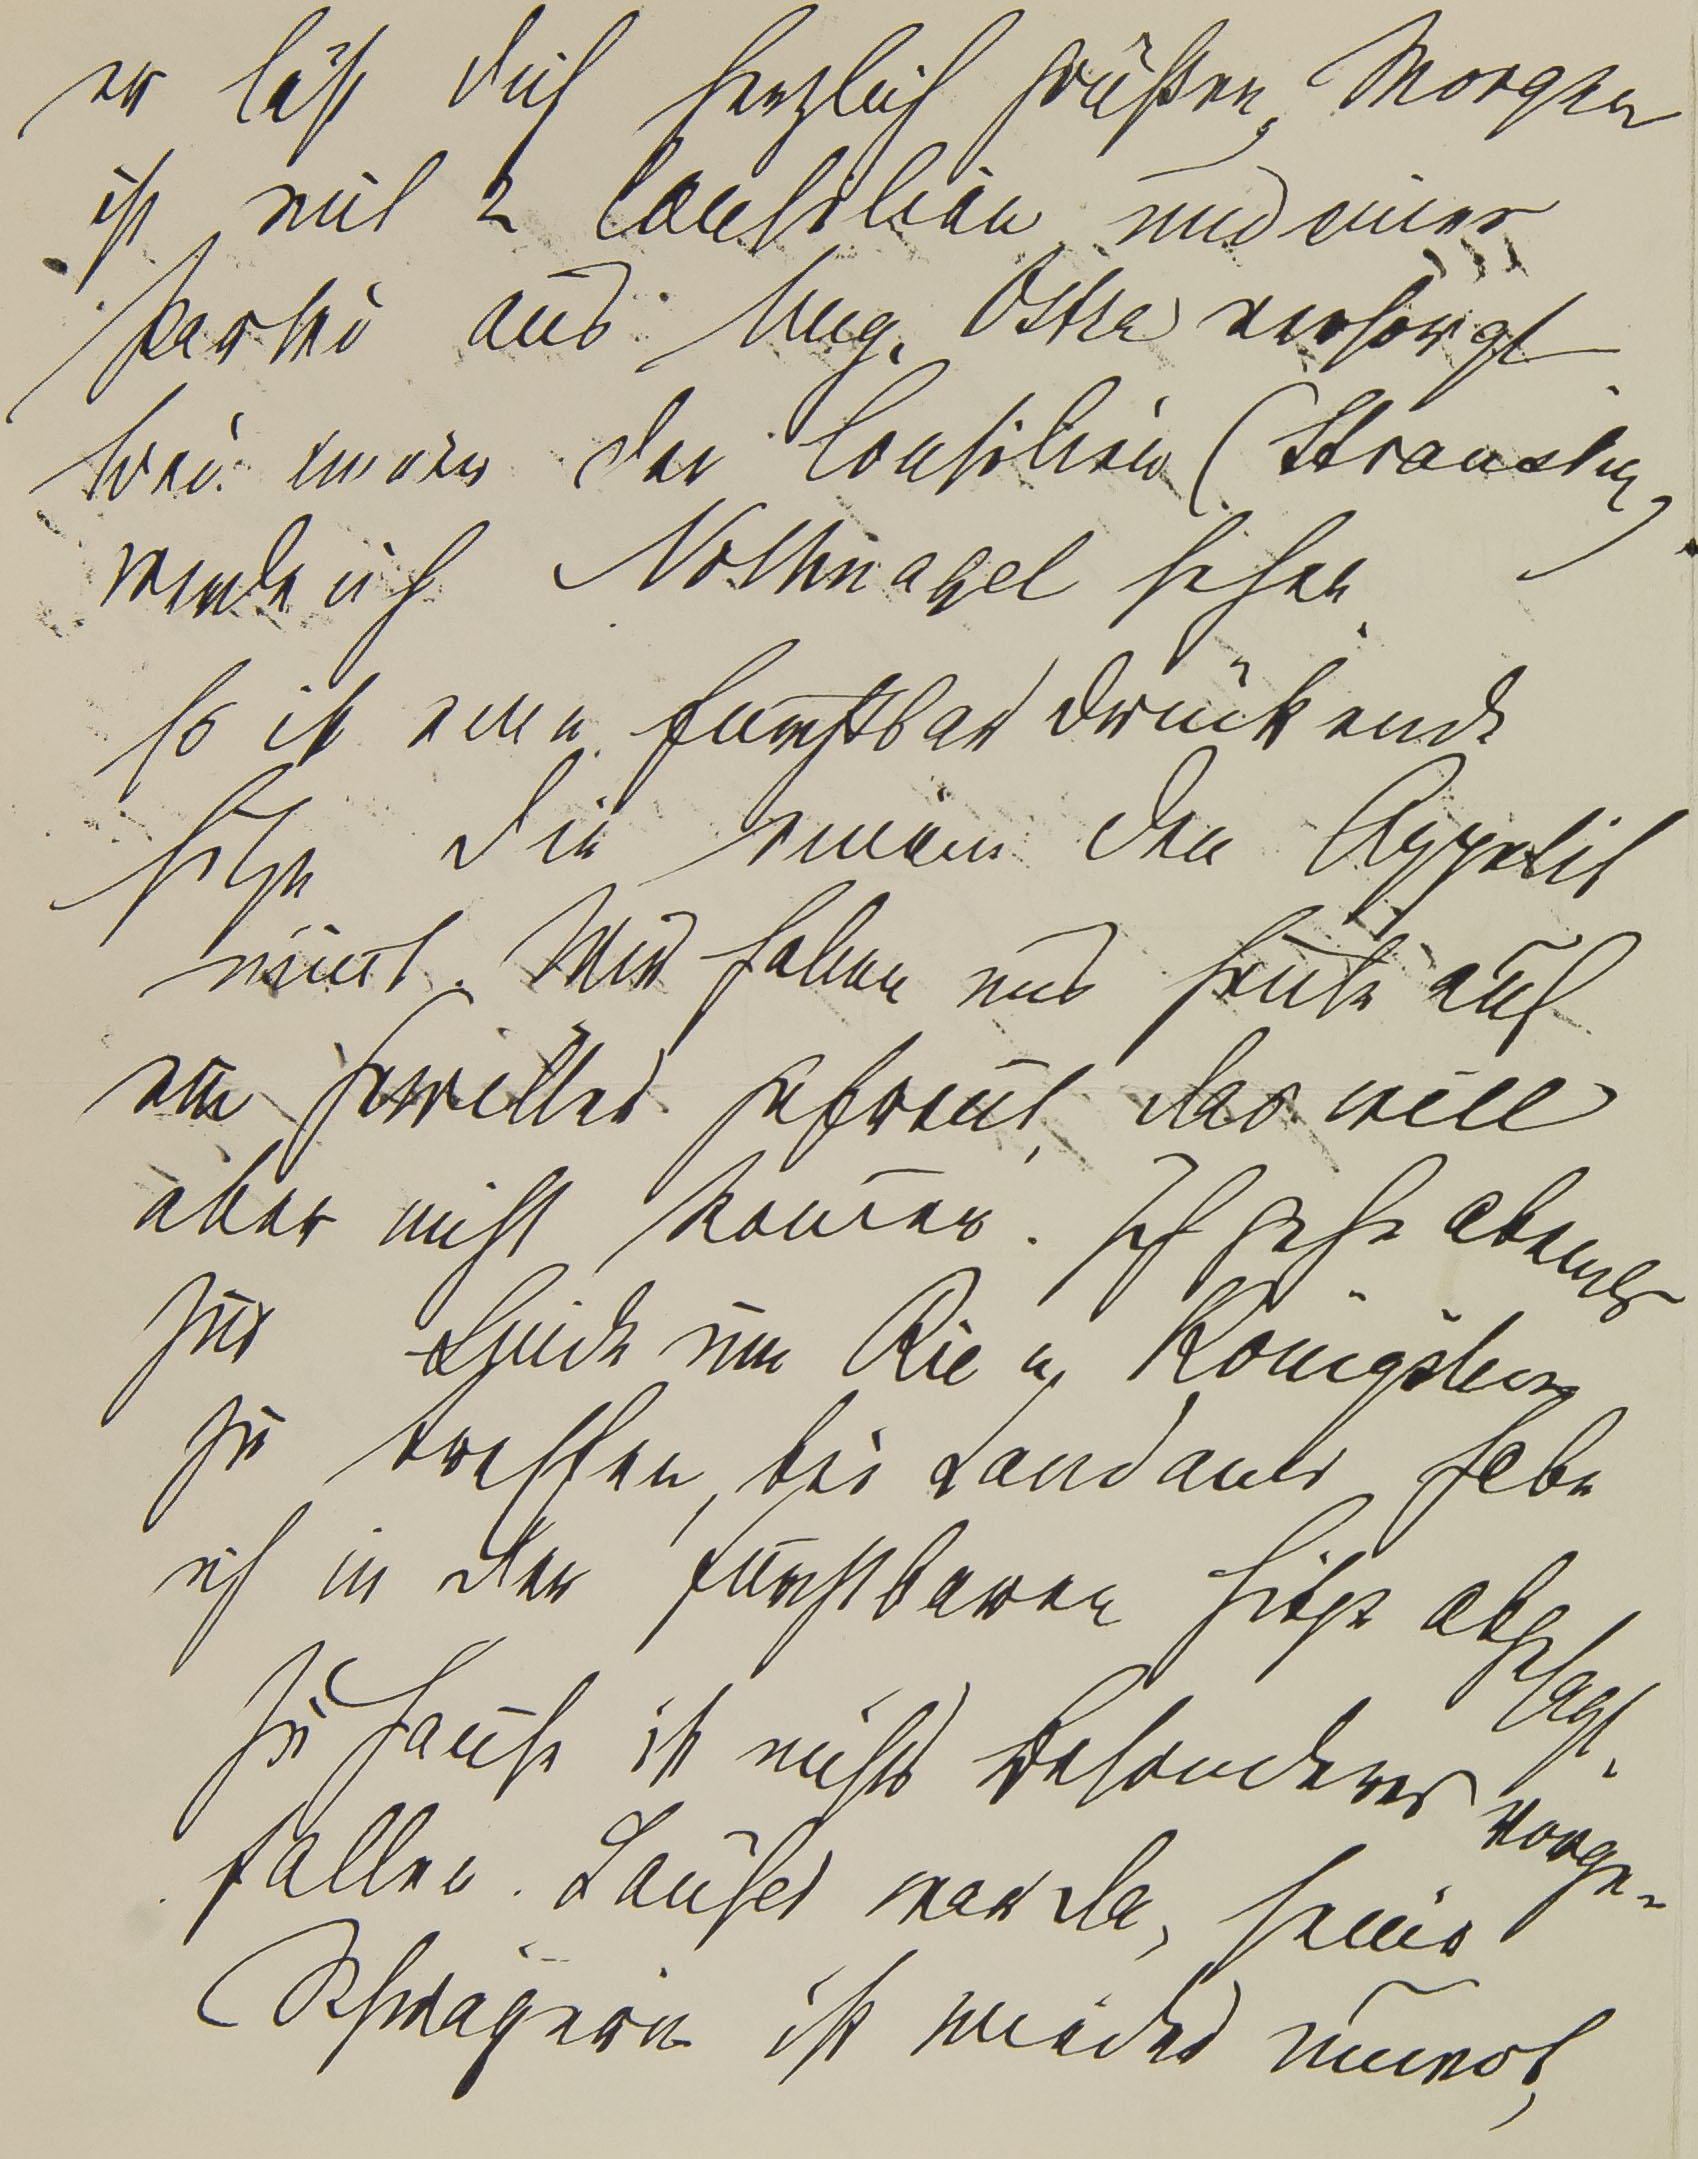 er läßt Dich herzlich grüßen, Morgen
ist mit 2 Consilien und einer
Partie aus Ung. Ostra versorgt
bei einem der Consilien (Stransky)
werde ich Nothnagel sehen.
Es ist eine furchtbar drückende
Hitze die einem den Appetit
nim̄t. Wir haben uns heute auf
ein Gewitter gefreut, das will
aber nicht kom̄en. Ich gehe abends
zur Linde um Rie u Königstein
zu treffen, bei Landauer habe
ich in der furchtbaren Hitze abgesagt.
Zu Hause ist nichts Besonderes vorge-
fallen. Laufer war da, seine
Schwägerin ist wieder